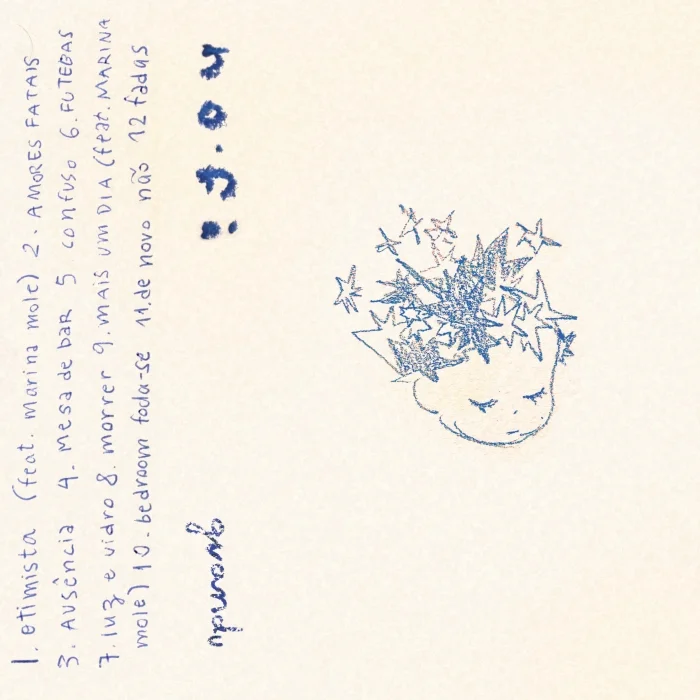 1. otimista (feat. marina mole) 2. AMORES FATAIS
3. AUSÊNCIA 4. mesa de bar 5 confuso 6. FUTEBAS
7. luz e vidro 8. morrer 9. mais um DIA (feat. MARINA
mole) 10. bedroom foda-se 11. de novo não 12 fadas